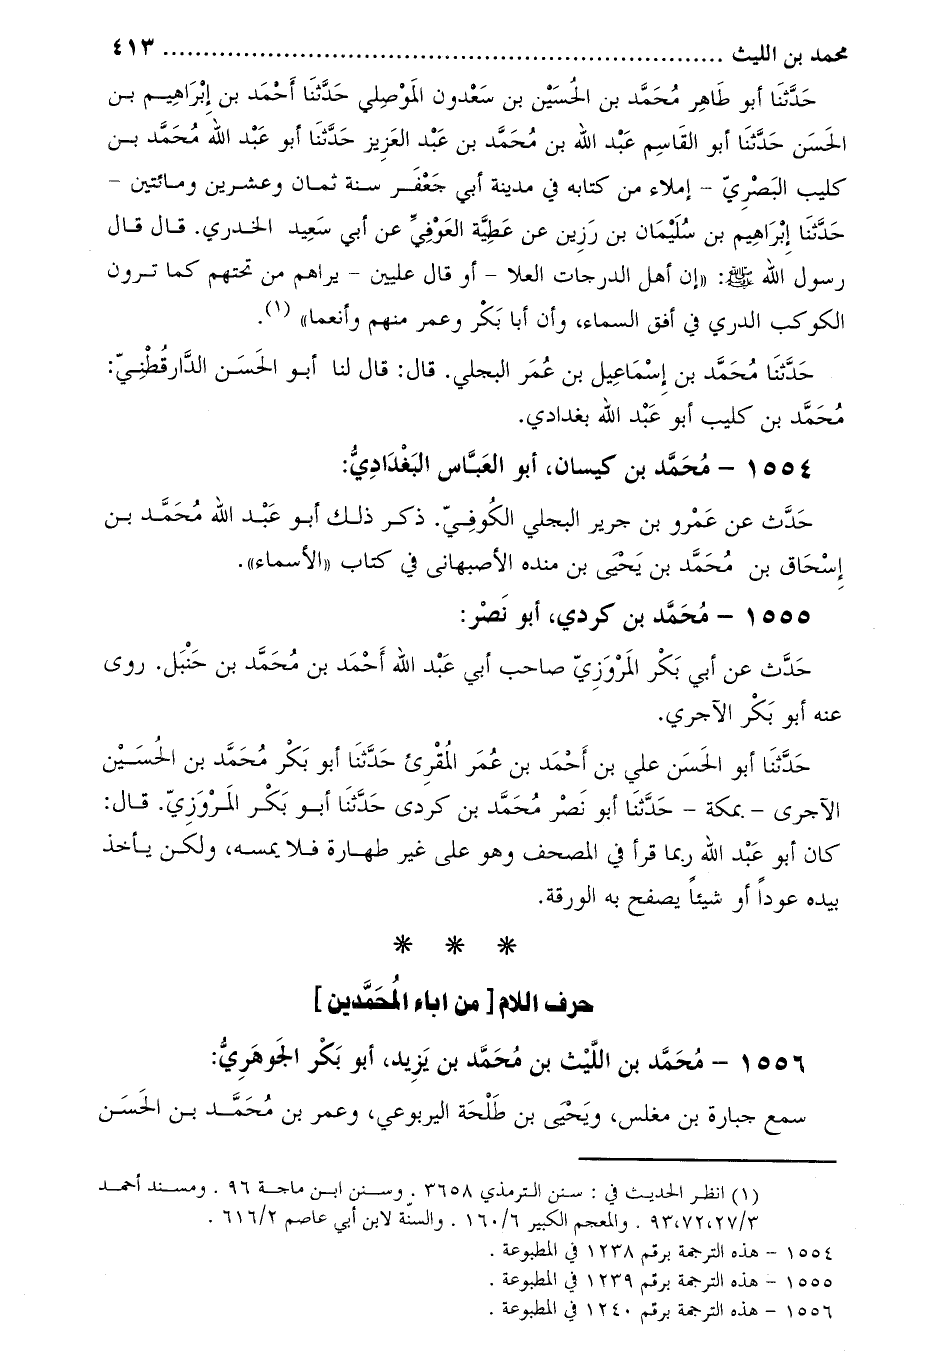 محمد بن الليث ........................................................................ ٤١٣
حَدَّثَنَا أبو طاهر مُحَمَّد بن الحُسَيْن بن سَعْدون المَوْصِلي حَدَّثَنَا أَحْمَد بن إِبْرَاهِيم بن
الحَسَن حَدَّثَنَا أبو القَاسِم عَبْد الله بن مُحَمَّد بن عَبْد العَزِيز حَدَّثَنَا أبو عَبْد الله مُحَمَّد بن
كليب البَصْرِيّ - إملاء من كتابه في مدينة أبي جَعْفَر سنة ثمان وعشرين ومائتين -
حَدَّثَنَا إِبْرَاهِيم بن سُلَيْمَان بن رَزِين عن عَطِيَّة العَوْفِيِّ عن أبي سَعِيد الخدري. قال قال
رسول الله ﷺ: «إن أهل الدرجات العلا - أو قال عليين - يراهم من تحتهم كما ترون
الكوكب الدري في أفق السماء، وأن أبا بَكْر وعمر منهم وأنعما» (١).
حَدَّثَنَا مُحَمَّد بن إِسْمَاعِيل بن عُمَر البجلي. قال: قال لنا أبو الحَسَن الدَّارقُطْنِيّ:
مُحَمَّد بن كليب أبو عَبْد الله بغدادي.
١٥٥٤ - مُحَمَّد بن كيسان، أبو العَبَّاس البَغْدَادِيُّ:
حَدَّث عن عَمْرو بن جرير البجلي الكُوفِيّ. ذكر ذلك أبو عَبْد الله مُحَمَّد بن
إِسْحَاق بن مُحَمَّد بن يَحْيَى بن منده الأصبهانى في كتاب «الأسماء».
١٥٥٥ - مُحَمَّد بن كردي، أبو نَصْر:
حَدَّث عن أبي بَكْر المَرْوَزِيّ صاحب أبي عَبْد الله أَحْمَد بن مُحَمَّد بن حَنْبَل. روى
عنه أبو بَكْر الآجري.
حَدَّثَنَا أبو الحَسَن علي بن أَحْمَد بن عُمَر المُقْرِئ حَدَّثَنَا أبو بَكْر مُحَمَّد بن الحُسَيْن
الآجرى - بمكة - حَدَّثَنَا أبو نَصْر مُحَمَّد بن كردى حَدَّثَنَا أبو بَكْر المَرْوَزِيّ. قال:
كان أبو عَبْد الله ربما قرأ في المصحف وهو على غير طهارة فلا يمسه، ولكن يأخذ
بيده عوداً أو شيئاً يصفح به الورقة.
* * *
حرف اللام [من اباء المُحَمَّدين]
١٥٥٦ - مُحَمَّد بن اللَّيْث بن مُحَمَّد بن يَزِيد، أبو بَكْر الجَوهَرِيُّ:
سمع جبارة بن مغلس، ويَحْيَى بن طَلْحَة اليربوعي، وعمر بن مُحَمَّد بن الحَسَن
(١) انظر الحديث في : سنن الترمذي ٣٦٥٨ . وسنن ابن ماجة ٩٦ . ومسند أحمد
٢٧/٣، ٧٢، ٩٣ . والمعجم الكبير ١٦٠/٦ . والسنّة لابن أبي عاصم ٦١٦/٢ .
١٥٥٤ - هذه الترجمة برقم ١٢٣٨ في المطبوعة .
١٥٥٥ - هذه الترجمة برقم ١٢٣٩ في المطبوعة .
١٥٥٦ - هذه الترجمة برقم ١٢٤٠ في المطبوعة .